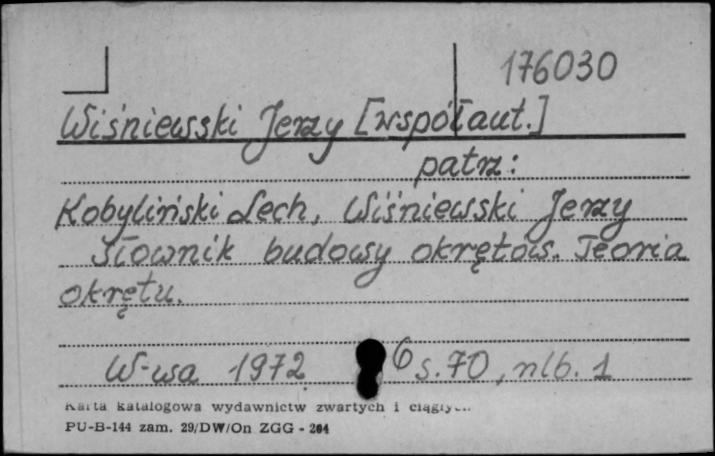 176030
Wiśniewski Jerzy [współaut.]
patrz:
Kobyliński Lech, Wiśniewski Jerzy
Słownik budowy okrętów. Teoria
okrętu.
W-wa 1972 6 s. 70, nlb. 1
Karta katalogowa wydawnictw zwartych i ciągłych
PU-B-144 zam. 29/DW/On ZGG - 264